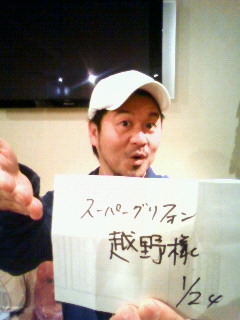 スーパーグリフォン
越野様
1/24